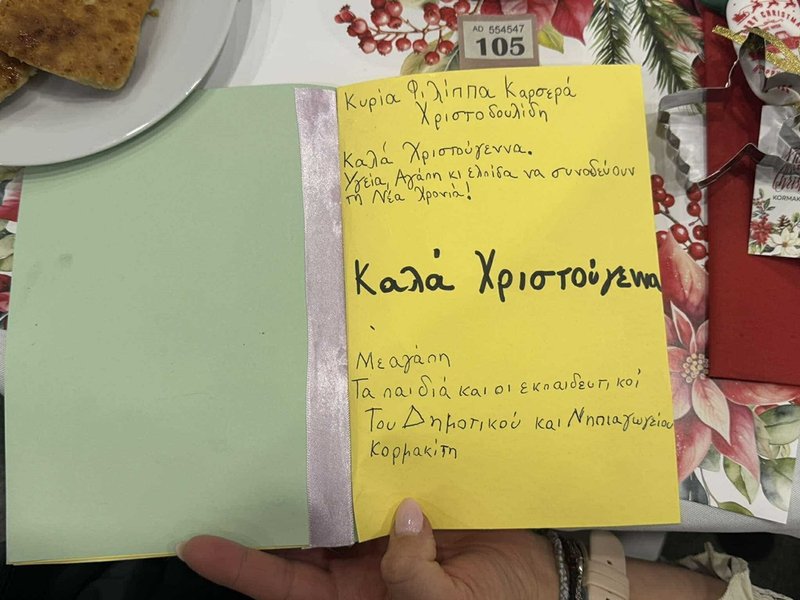 AD 554547
105
Κυρία Φιλίππα Καρσερά
Χριστοδουλίδη
Καλά Χριστούγεννα.
Υγεία, Αγάπη κι ελπίδα να συνοδεύουν
τη Νέα Χρονιά!
Καλά Χριστούγεννα
Με αγάπη
Τα παιδιά και οι εκπαιδευτικοί
Του Δημοτικού και Νηπιαγωγείου
Κορμακίτη
CHRISTM
KORMAK